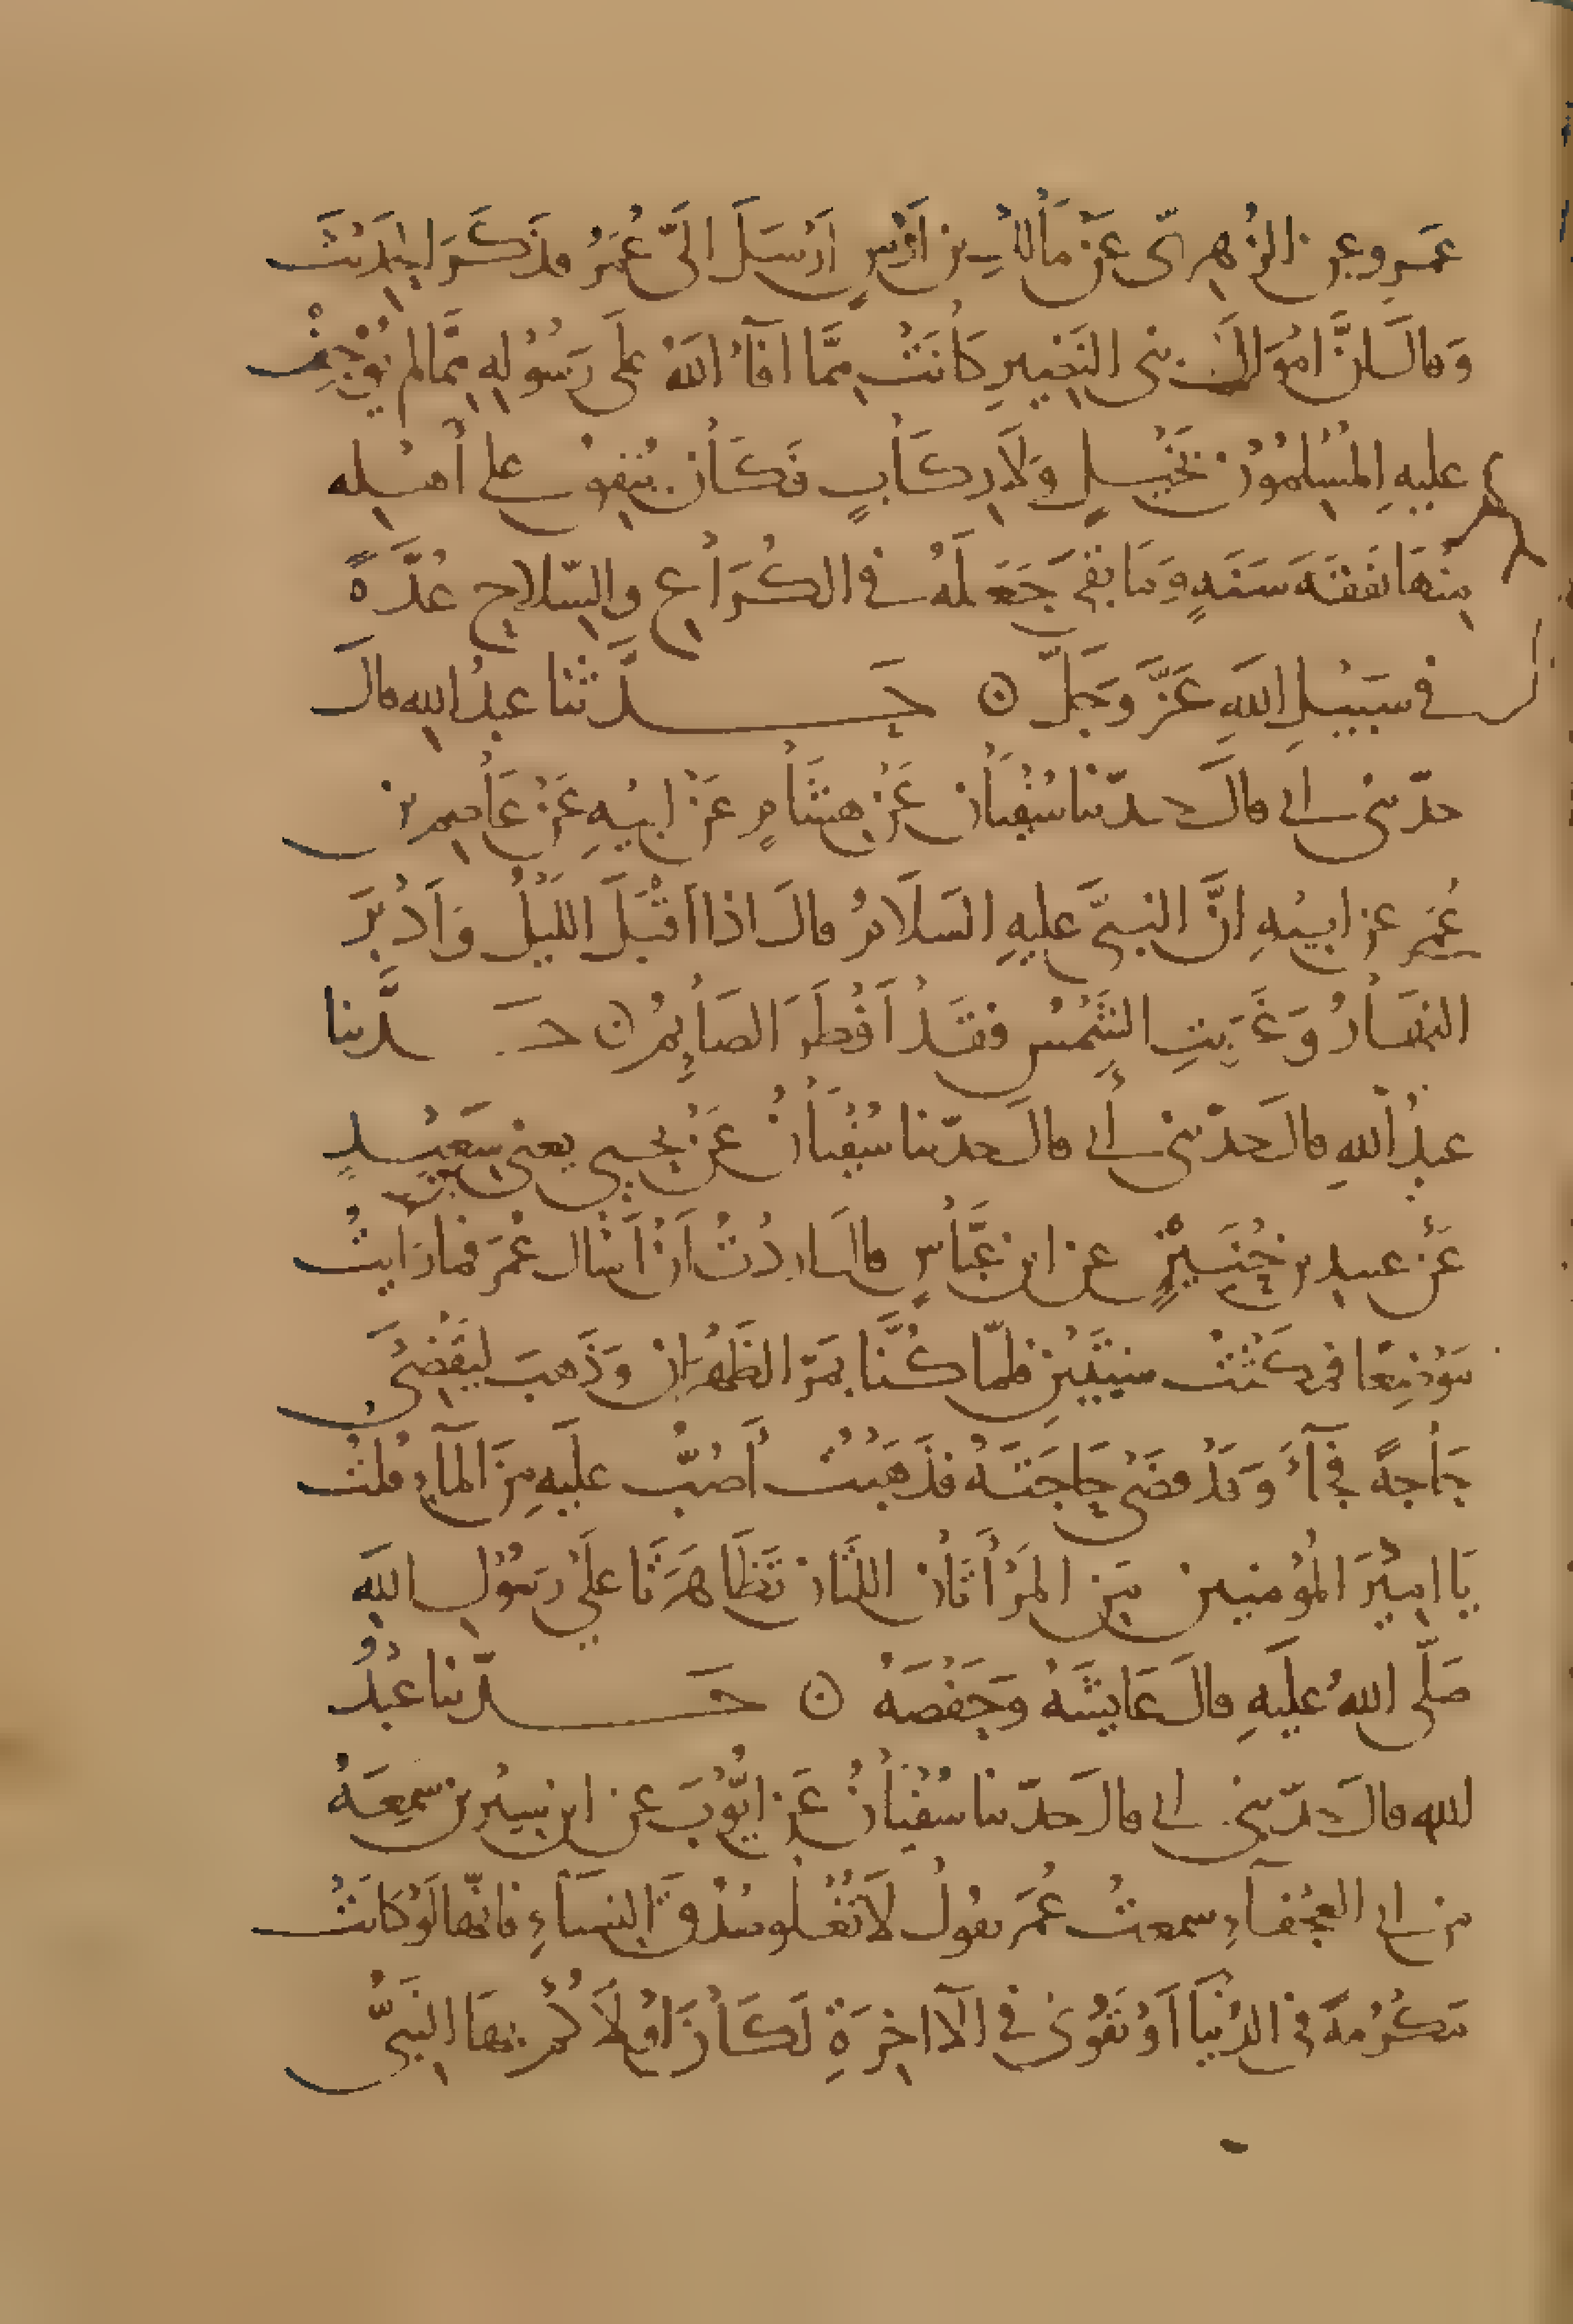 عَمرٍو عن الزُهرِىّ عَن مَالكِ بن اَوْسٍ اَرْسَلَ الىَّ عُمَرُ فذَكَرَ الحَدِيْثَ
وَقالَ اِنَّ امْوَالَ بنى النَضِيرِ كَانَتْ مِمَّا افآءَ اللهُ عَلَى رَسُوْلِهِ مِمَّا لم يُوْجِفْ
عليهِ المُسْلِمُوْنَ بخَيْلٍ وَلَا رِكَابٍ فكَانَ يُنفِقُ على أهْلِه
مِنْهَا نَفَقَةَ سَنَةٍ وَمَا بَقىَ جَعَلَهُ فى الكُرَاعِ والسِّلاحِ عُدَّةً
فى سَبيْلِ اللهِ عَزَّ وَجَلَّ ۞ حَدَّثنا عبدُ اللهِ قالَ
حدّثنى ابى قالَ حدّثنا سُفْيَانُ عَنْ هِشَامٍ عَنْ ابيْهِ عَنْ عَاصِمِ بن
عُمَر عن ابيْهِ انَّ النبىَّ عليهِ السَلَامُ قالَ اذا اَقْبَلَ اللَيْلُ وَاَدْبَرَ
النهَارُ وَغَرَبَتِ الشَمْسُ فقَدْ اَفْطَرَ الصَائِمُ ۞ حَدَّثنا
عبدُ اللهِ قالَ حدّثنى أبى قالَ حدّثنا سُفْيَانُ عَنْ يحيى يعنى بن سَعِيْدٍ
عَنْ عبيدِ بن حُنَيْنٍ عن ابن عَبَّاسٍ قالَ اردْتُ اَنْ اَسْالَ عُمَرَ فما رَايتُ
مَوْضِعًا فمكَثْتُ سنتَيْنِ فلمّا كُنَّا بمَرّ الظَهْرَانِ وَذَهبَ ليَقْضِىَ
حَاجةً فجآءَ وَقَدْ قضَى حَاجَتَهُ فذَهَبْتُ أَصُبُّ علَيهِ مِنَ المآءِ قلتُ
يَا امِيْرَ المُؤْمنينَ مَنِ المَرْأَتَانِ اللتَانِ تَظَاهَرَتَا علَى رَسُوْلِ اللهِ
صَلّى اللهُ علَيهِ قالَ عَايشَةُ وَحَفْصَةُ ۞ حَدّثنا عَبْدُ
الله قالَ حدّثنى ابى قالَ حدّثنا سُفْيَانُ عَن ايّوْبَ عن ابن سِيْرِين سَمِعَهُ
من ابى العَجْفَآءِ سمعتُ عُمَرَ يقولُ لَا تُغْلُو صُدُقَ النِسَآءِ فانّها لَوْ كَانَتْ
مَكْرُمةً فى الدُنْيَا اَوْ تَقْوَى فى الآاخِرَةِ لَكَانَ اوْلَاكُم بهَا النَبىُّ